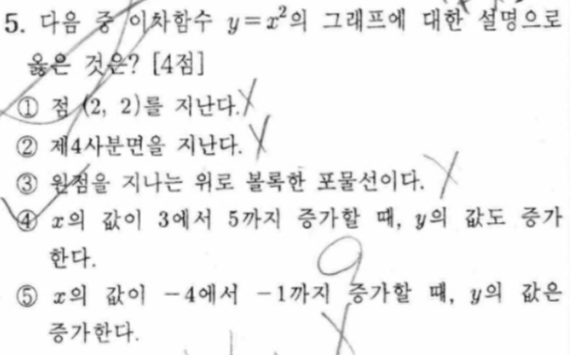 5. 다음 중 이차함수 y=x²의 그래프에 대한 설명으로
옳은 것은? [4점]
① 점 (2, 2)를 지난다.
② 제4사분면을 지난다.
③ 원점을 지나는 위로 볼록한 포물선이다.
④ x의 값이 3에서 5까지 증가할 때, y의 값도 증가
한다.
⑤ x의 값이 -4에서 -1까지 증가할 때, y의 값은
증가한다.